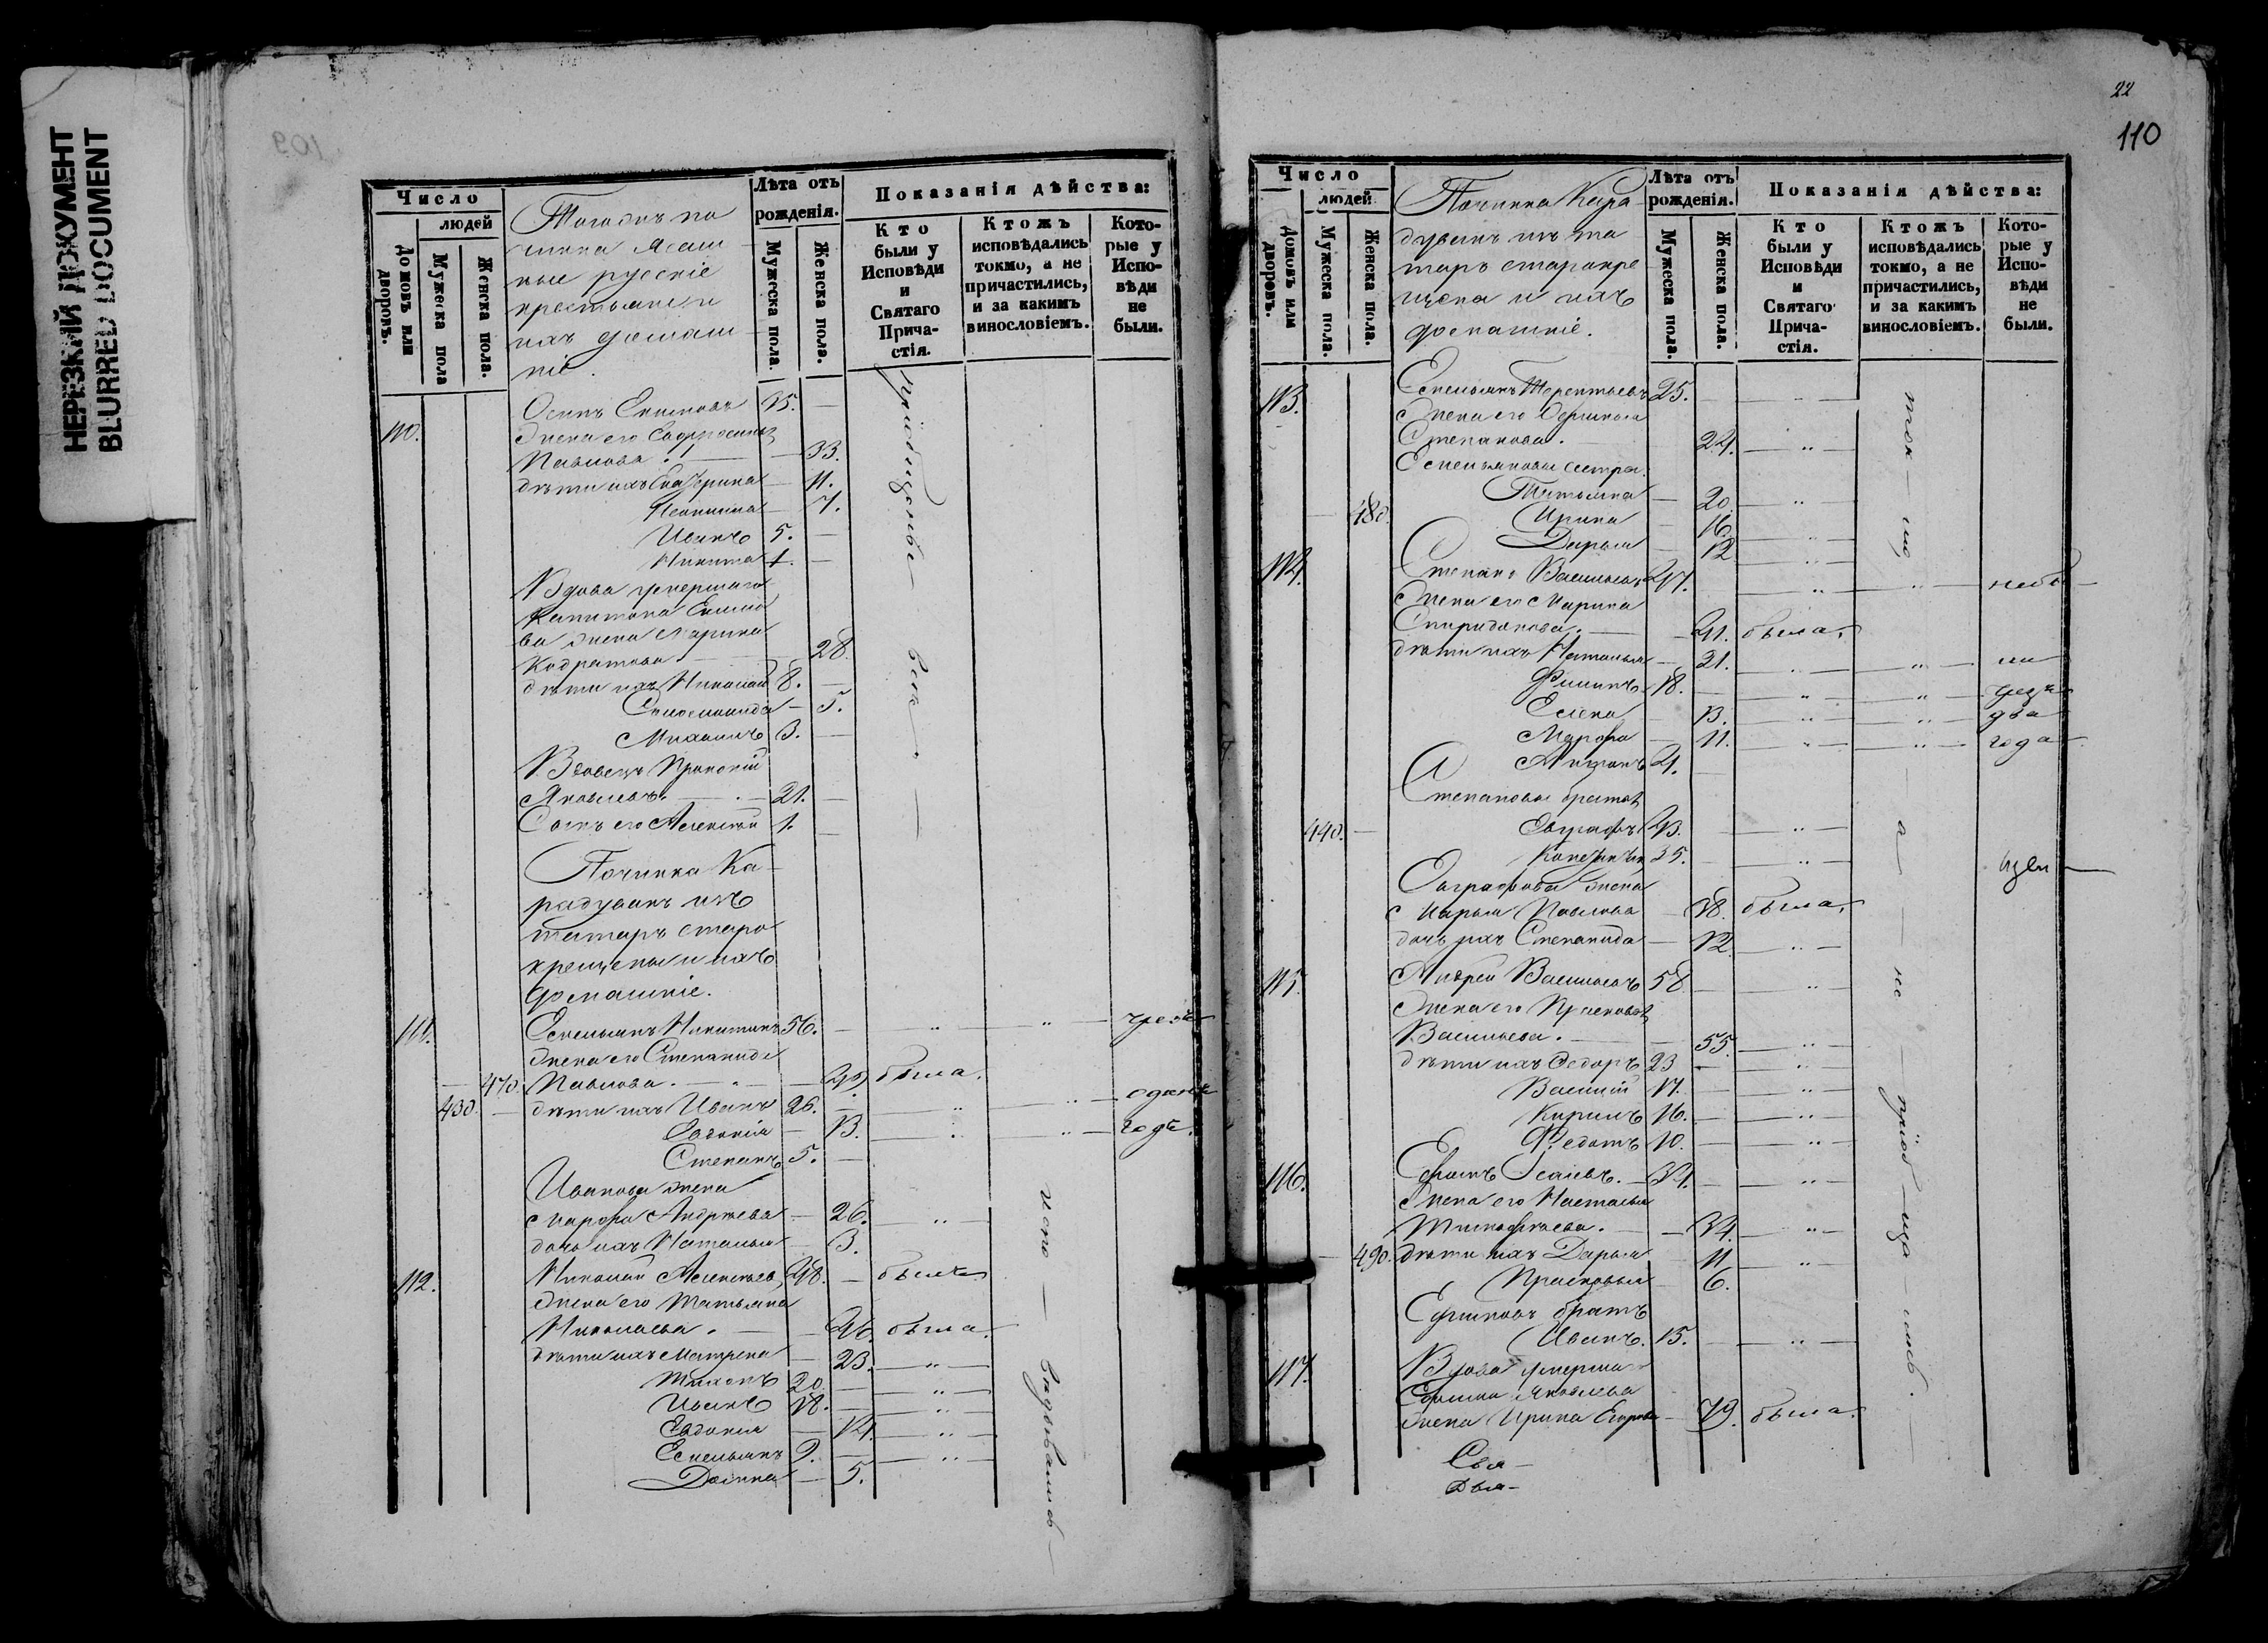 НЕРЕЗКИЙ ДОКУМЕНТ
BLURRED DOCUMENT
109
Число
людей
Домовъ или дворовъ.
Мужеска пола
Женска пола.
Тогожъ по
чинка Ясаш
ные русскіе
крестьяне и
ихъ домаш
ніе.
Лѣта отъ рожденія.
Мужеска пола.
Женска пола.
Показанія дѣйства:
Кто были у Исповѣди и Святаго Причастія.
Ктожъ исповѣдались токмо, а не причастились, и за какимъ винословіемъ.
Которые у Исповѣди не были.
110. Осипъ Екимовъ 35.
Жена его Евфросинья
Павлова. 33.
дѣти ихъ Екатерина 11.
7.
Иванъ 5.
Никита 1.
Вдова умершаго
Капитона Екимо
ва жена Марина
Кодратова 28.
дѣти ихъ Николай 8.
5.
Михаилъ 3.
Вдовецъ
Яковлевъ. 21.
Сынъ его Алексѣй 1.
Починка Ка-
радуванъ изъ
татаръ старо
крещены и ихъ
домашніе.
111. Емельянъ Никитинъ 56. чрезъ
Жена его Степанида
470. Павлова. была.
430. дѣти ихъ Иванъ 26. одинъ
Евдокія 13. годъ.
Степанъ 5.
Иванова жена
Марфа Андреева 26.
дочь ихъ Наталья 3.
112. Николай Алексѣевъ 48. былъ
Жена его Татьяна
Николаева. 46. была.
дѣти ихъ Матрена 23.
Тихонъ 20.
Иванъ 18.
Евдокія 14.
Емельянъ 9.
5.
22
110
Число
людей
Домовъ или дворовъ.
Мужеска пола.
Женска пола.
Починка Кара
дуванъ изъ та
таръ старокре
щена и ихъ
домашніе.
Лѣта отъ рожденія.
Мужеска пола.
Женска пола.
Показанія дѣйства:
Кто были у Исповѣди и Святаго Причастія.
Ктожъ исповѣдались токмо, а не причастились, и за какимъ винословіемъ.
Которые у Исповѣди не были.
113. Емельянъ Терентьевъ 25.
Жена его
Степанова. 24.
Емельяновы сестра
Татьяна 20.
480. Ирина 16.
Дарья 12.
114. Степанъ Васильевъ 47. небы
Жена его Марина
Спиридонова. 41. была.
дѣти ихъ Наталья 21. ли
Филипъ 18. чрезъ
Елена 13. два
Марфа 11. года
Антонъ 4.
Степановы братья
440. Евграфъ 43.
35.
Евграфова жена
Марья Павлова была.
дочь ихъ Степанида 12.
115. Андрей Васильевъ 58.
Жена его Прасковья
Васильева. 55.
дѣти ихъ Федоръ 23
Василій 17.
Кирилъ 16.
Федотъ 10.
116. Ефимъ Исаевъ. 34.
Жена его Настасья
Тимофѣева. 34.
490. дѣти ихъ Дарья 11
Прасковья 6.
Ефимовъ братъ
Иванъ. 15.
117. Вдова умерша
Ефима Яковлева
жена Ирина Егорова 79. была.